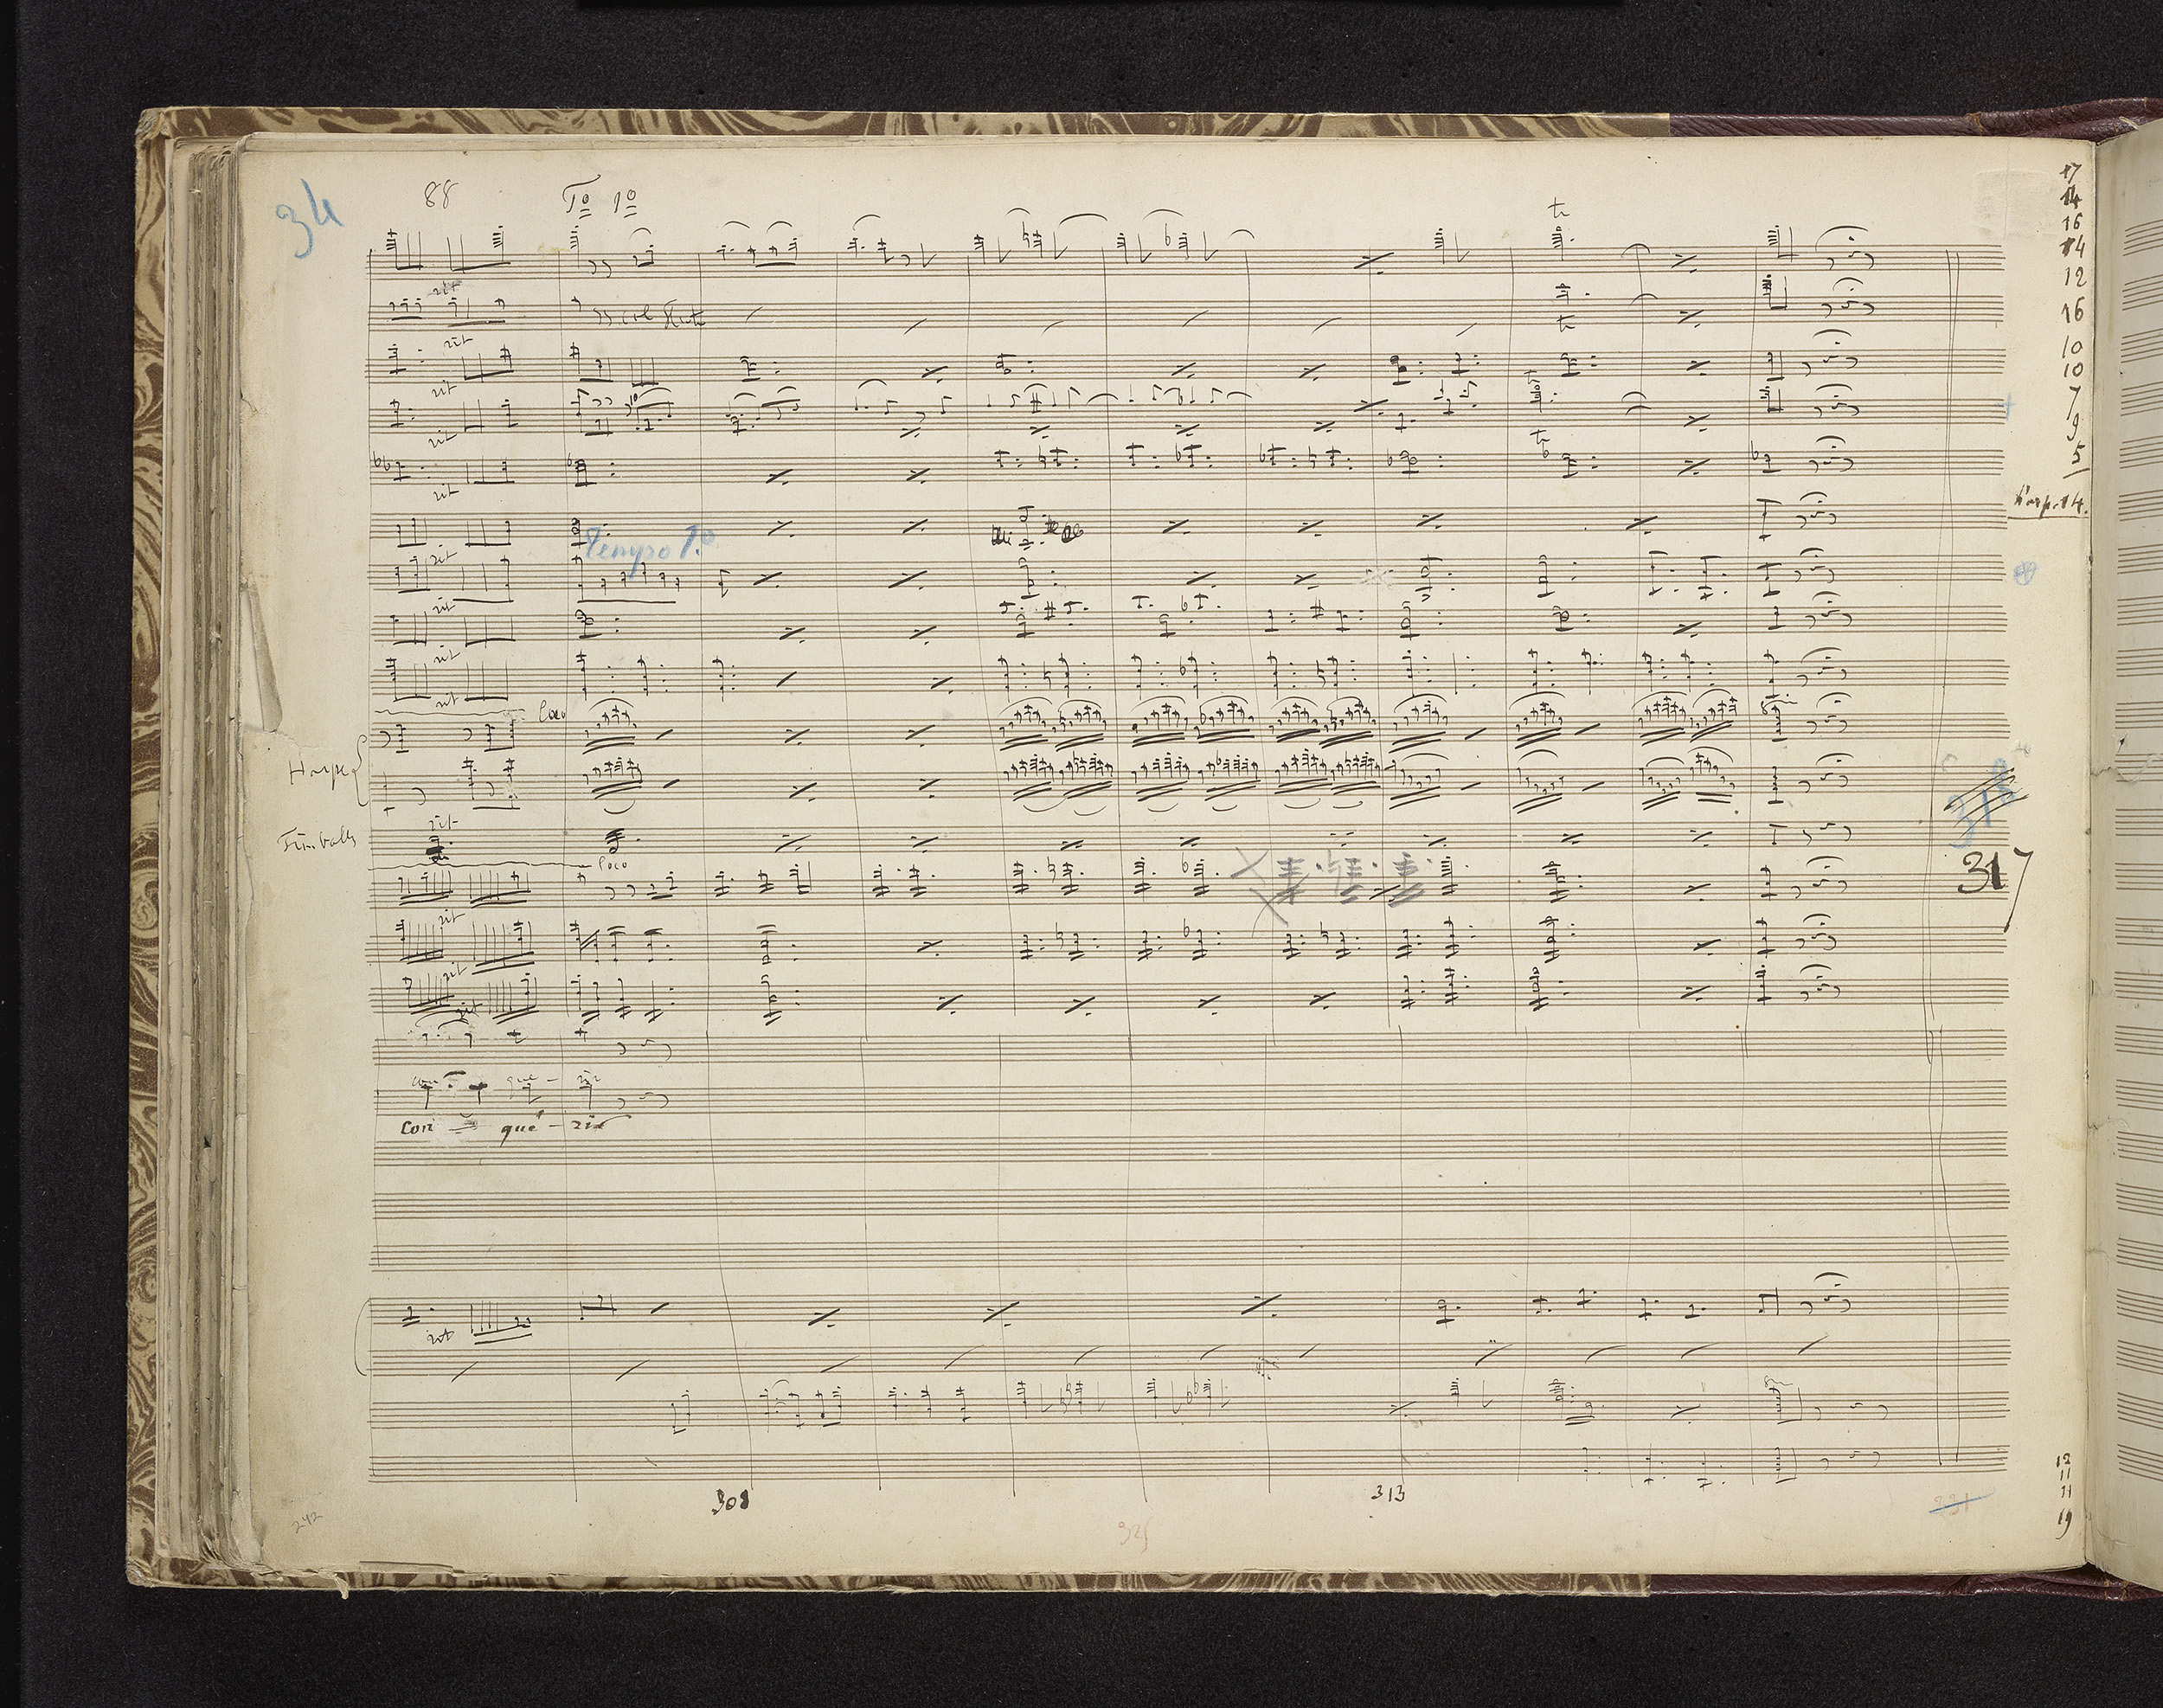 34
88
To 1o
17
14
16
14
12
16
10
10
7
9
5
Harp. 14.
rit
col Flute
rit
rit
rit
rit
Tempo 1o
rit
rit
rit
rit
Loco
Harpe
rit
Timbales
Loco
317
rit
rit
rit
con - qué - rir
Con - qué - rir
rit
308
313
242
325
221
12
11
11
19